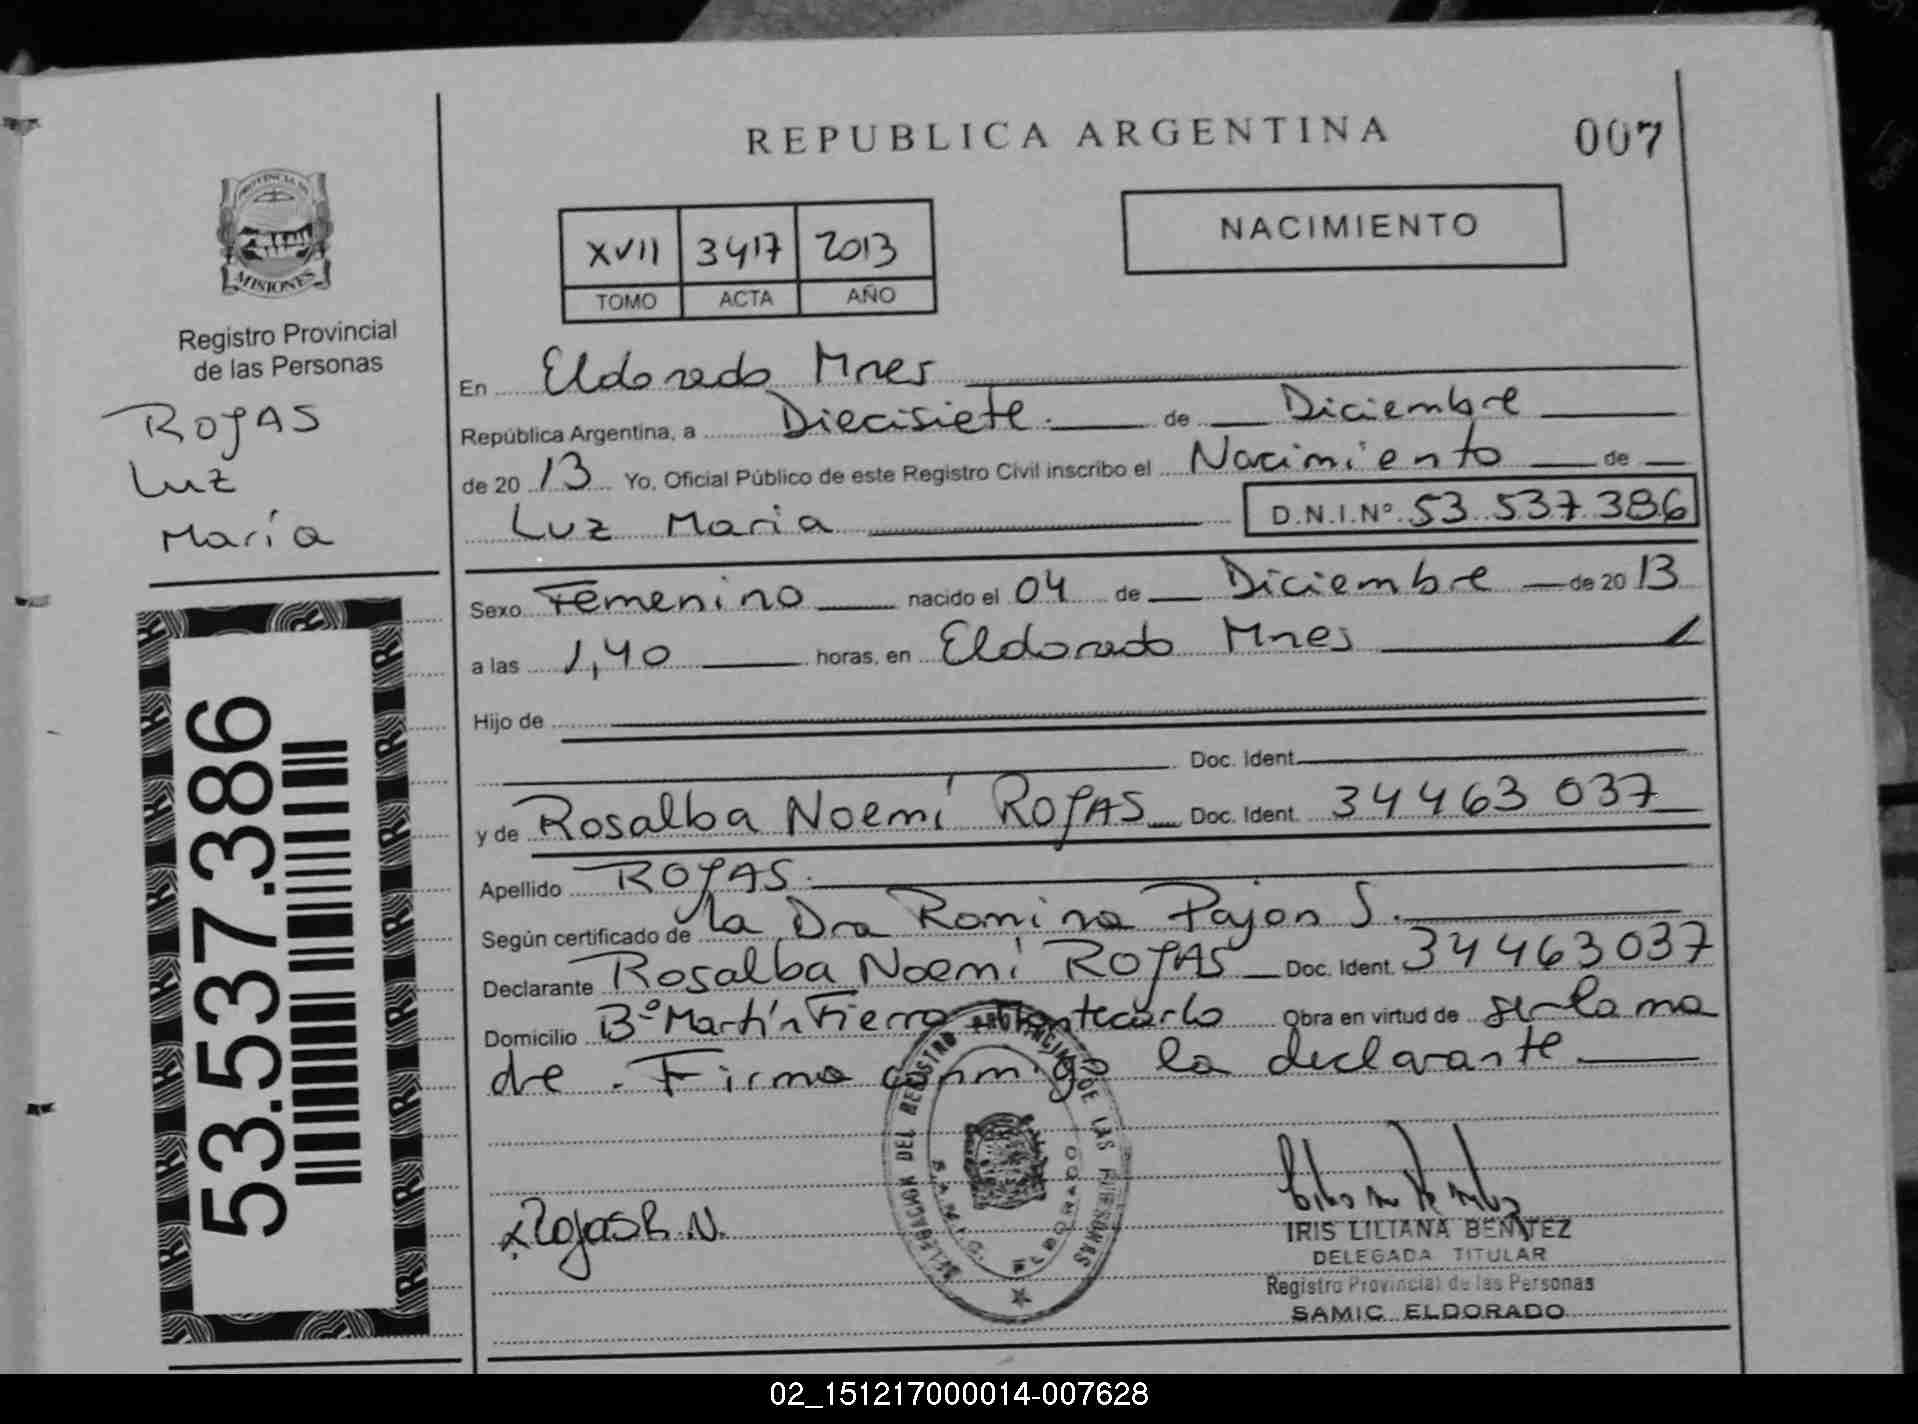 REPUBLICA ARGENTINA
007
PROVINCIA DE
MISIONES
Registro Provincial
de las Personas
ROJAS
Luz
María
53.537.386
XVII 3417 2013
TOMO ACTA AÑO
NACIMIENTO
En Eldorado Mnes
República Argentina, a Diecisiete. de Diciembre
de 2013 Yo, Oficial Público de este Registro Civil inscribo el Nacimiento de
Luz Maria D.N.I.Nº. 53.537.386
Sexo Femenino nacido el 04 de Diciembre de 2013
a las 1,40 horas, en Eldorado Mnes
Hijo de
Doc. Ident.
y de Rosalba Noemí ROJAS Doc. Ident. 34463037
Apellido ROJAS.
Según certificado de la Dra Romina Pajon S.
Declarante Rosalba Noemí ROJAS Doc. Ident. 34463037
Domicilio Bº Martín Fierro Montecarlo Obra en virtud de ser la ma
dre. Firma conmigo la declarante.
DELEGACION DEL REGISTRO PROVINCIAL DE LAS PERSONAS
S.A.M.I.C. ELDORADO
x Rojas R. N.
IRIS LILIANA BENITEZ
DELEGADA TITULAR
Registro Provincial de las Personas
SAMIC ELDORADO
02_151217000014-007628